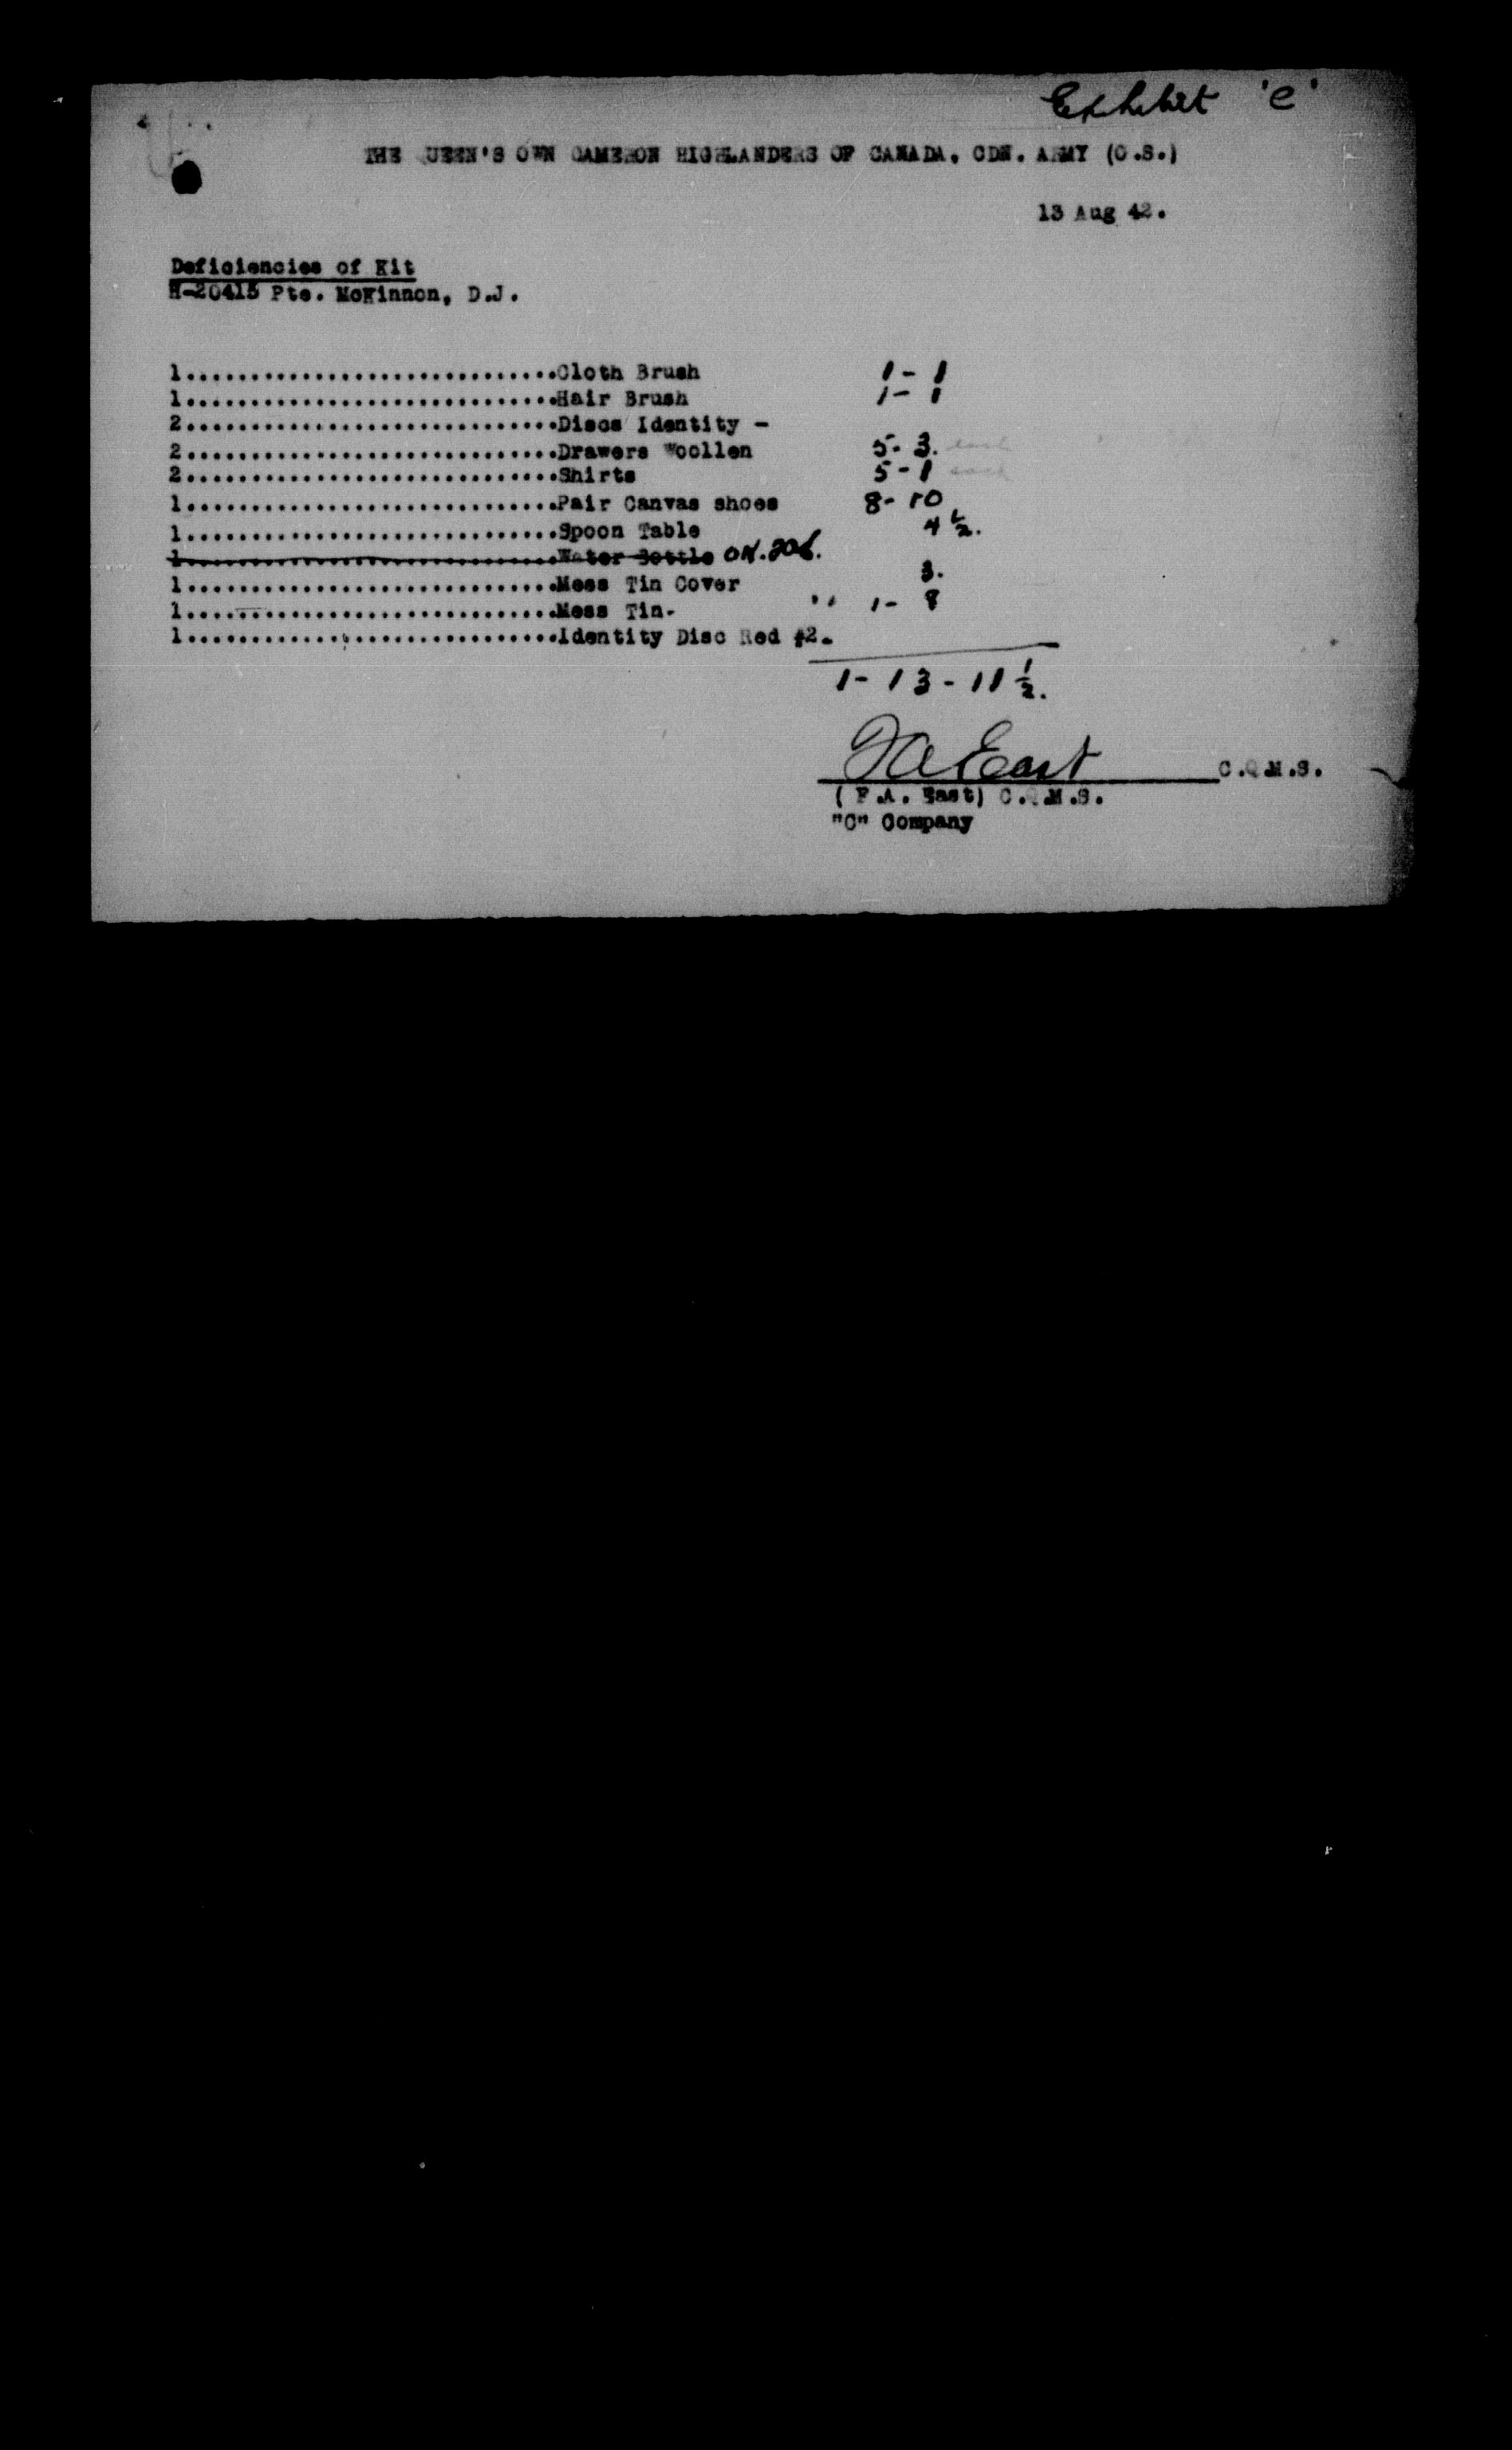 Exhibit 'C'
THE QUEEN'S OWN CAMERON HIGHLANDERS OF CANADA. CDN. ARMY (O.S.)
13 Aug 42.
Deficiencies of Kit
H-20415 Pte. McKinnon, D.J.
1..............................Cloth Brush 1 - 1
1..............................Hair Brush 1 - 1
2..............................Discs Identity -
2..............................Drawers Woollen 5 - 3. each
2..............................Shirts 5 - 1 each
1..............................Pair Canvas shoes 8 - 10
1..............................Spoon Table 4 ½.
1..............................Water Bottle OK.
1..............................Mess Tin Cover 3.
1..............................Mess Tin- " 1 - 8
1..............................Identity Disc Red #2.
1 - 13 - 11 ½.
FA East C.Q.M.S.
( F.A. East) C.Q.M.S.
"C" Company